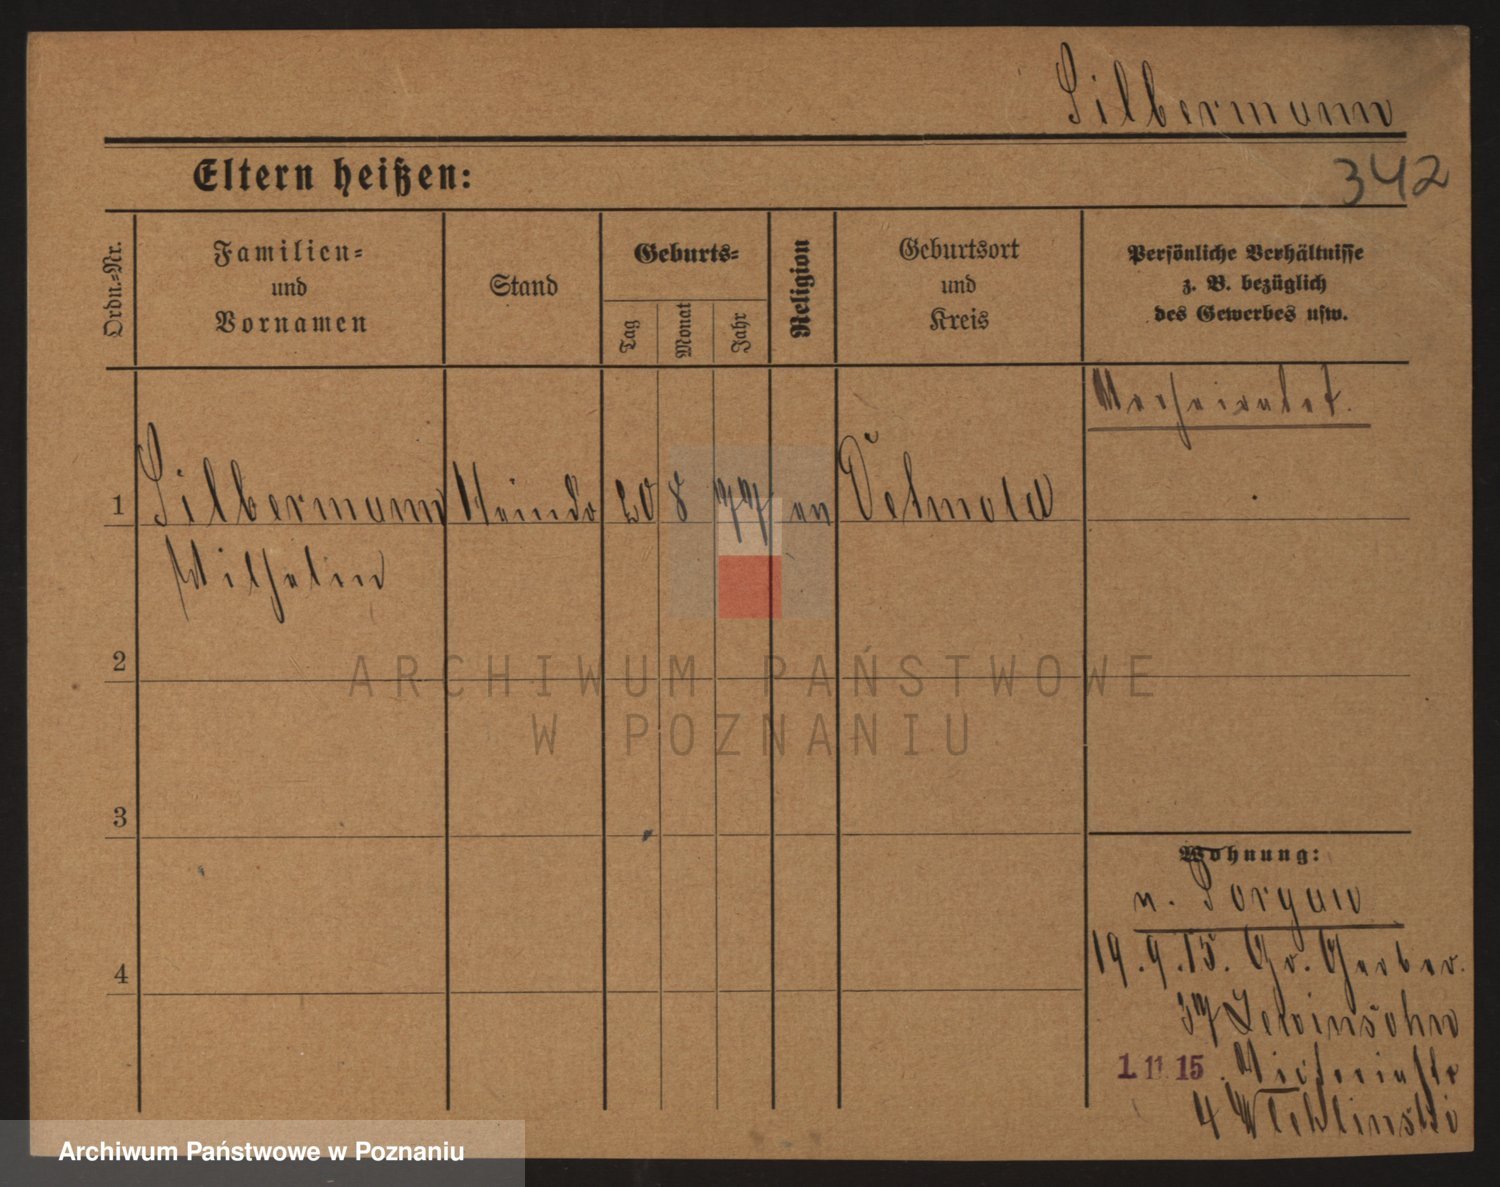 Silbermann
Eltern heißen:
342
Ordn.-Nr.
Familien-
und
Vornamen
Stand
Geburts-
Tag
Monat
Jahr
Religion
Geburtsort
und
Kreis
Persönliche Verhältnisse
z. B. bezüglich
des Gewerbes usw.
Verheiratet.
1
Silbermann
20 8 77 ev Detmold
Wilhelm
2
ARCHIWUM PAŃSTWOWE
W POZNANIU
3
Wohnung:
n. Sorgau
4
19.9.15. Gr. Gerber.
37 Lewinsohn
1.11.15. Victoriastr
4
Archiwum Państwowe w Poznaniu